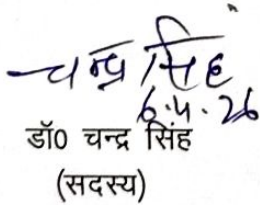 चन्द्र सिंह
6.4.26
डॉ0 चन्द्र सिंह
(सदस्य)